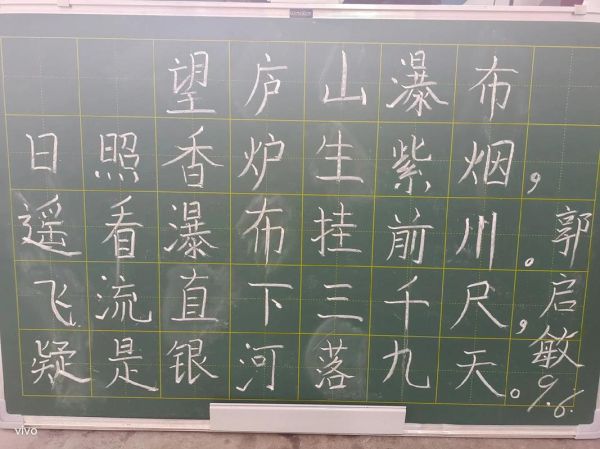 望庐山瀑布
日照香炉生紫烟,
遥看瀑布挂前川。
飞流直下三千尺,
疑是银河落九天。
郭启敏
9.6.
vivo